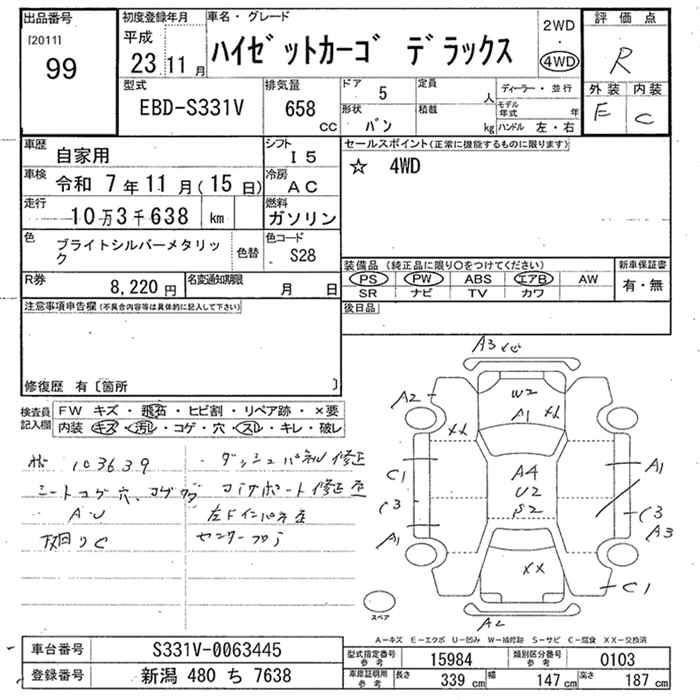 出品番号
[2011]
99
初度登録年月
平成
23 11 月
車名・グレード
ハイゼットカーゴ デラックス
2WD
・
4WD
評価点
R
外装 内装
E C
型式
EBD-S331V
排気量
658
CC
ドア 5
形状 バン
定員 人
積載 kg
ディーラー・並行
モデル年式 年
ハンドル 左・右
車歴
自家用
シフト
I5
車検
令和 7年11月(15日)
冷房
AC
走行
10万3千638 km
燃料
ガソリン
色
ブライトシルバーメタリック
色替
色コード
S28
R券
8,220円
名変通知期限
月 日
セールスポイント(正常に機能するものに限ります)
☆ 4WD
装備品 (純正品に限り○をつけてください)
PS PW ABS エアB AW
SR ナビ TV カワ
新車保証書
有・無
後日品
注意事項申告欄(不具合内容等は具体的に記入して下さい)
修復歴 有〔箇所 〕
検査員記入欄
FW キズ・飛石・ヒビ割・リペア跡・×要
内装・キズ・汚レ・コゲ・穴・スレ・キレ・破レ
103639
シートコゲ穴、コゲ
AU
下回りC
・ダッシュパネル修正
コアサポート修正歪
左ドインパネ歪
センターフロ
A3
A2
W2
A1
XX
XX
C1
C3
A1
A4
U2
S2
A1
C3
A3
XX
C1
A2
スペア
A-キズ E-エクボ U-凹み W-補修跡 S-サビ C-腐食 XX-交換済
車台番号
S331V-0063445
登録番号
新潟 480 ち 7638
型式指定番号
参考
15984
類別区分番号
参考
0103
車庫証明用
参考
長さ 339 cm
幅 147 cm
高さ 187 cm